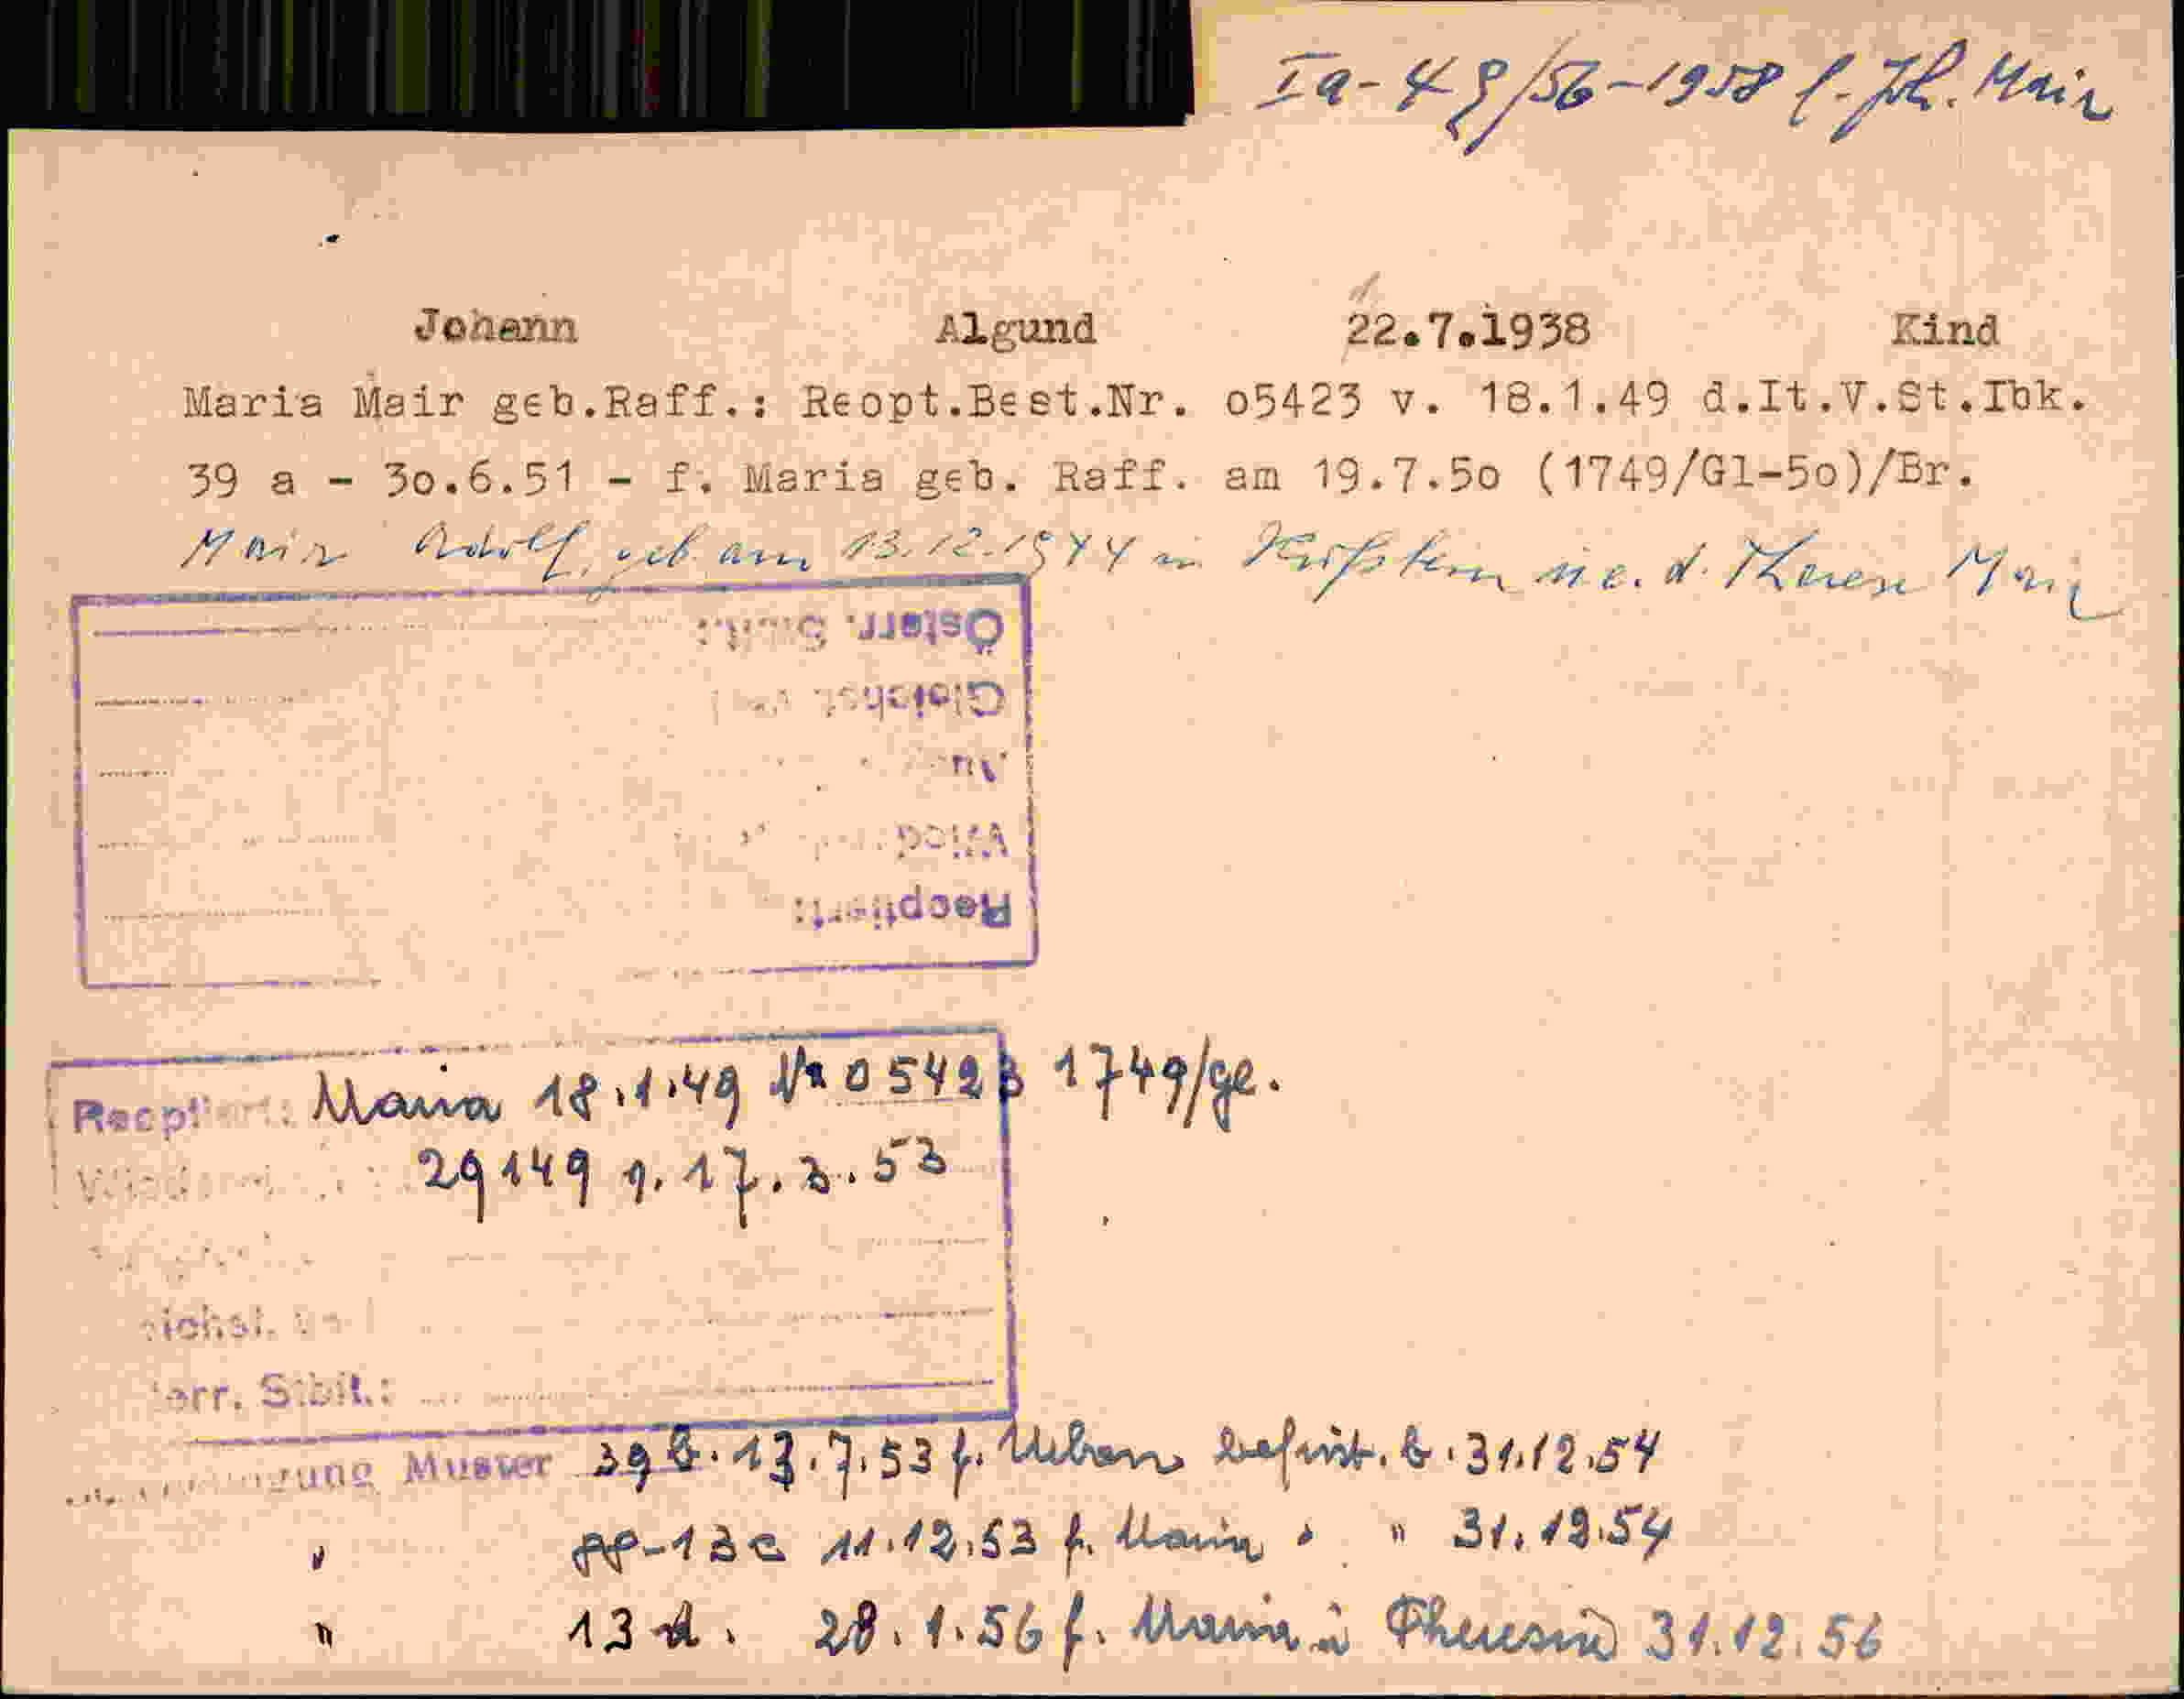 Ia-49/56-1958 f. Joh. Mair
Johann Algund 22.7.1938 Kind
Maria Mair geb.Raff.: Reopt.Best.Nr. o5423 v. 18.1.49 d.It.V.St.Ibk.
39 a - 3o.6.51 - f. Maria geb. Raff. am 19.7.5o (1749/Gl-5o)/Br.
Mair Adolf, geb. am 13.12.1944 in Kufstein u.e. d. Therese Mair
Österr. Stbft.:
Gleichst.
Reoptiert:
Reoptiert: Maria 18.1.49 Nr 05423 1749/ge.
29149 v. 17.3.53
ichst.
err. Stbft.:
Muster 39b. 13.7.53 f. Urban befrist. b. 31.12.54
" 13c 11.12.53 f. Maria " " 31.12.54
" 13d. 28.1.56 f. Maria u Theresia 31.12.56